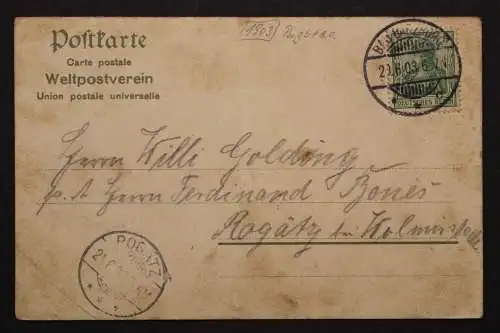 (1903)
Postkarte
Carte postale
Weltpostverein
Union postale universelle
20.6.03.6-7N.
Herrn Willi Golding
p. A Herrn Ferdinand Bones
Rogätz bei Wolmirstedt
ROGÄTZ
21.6.